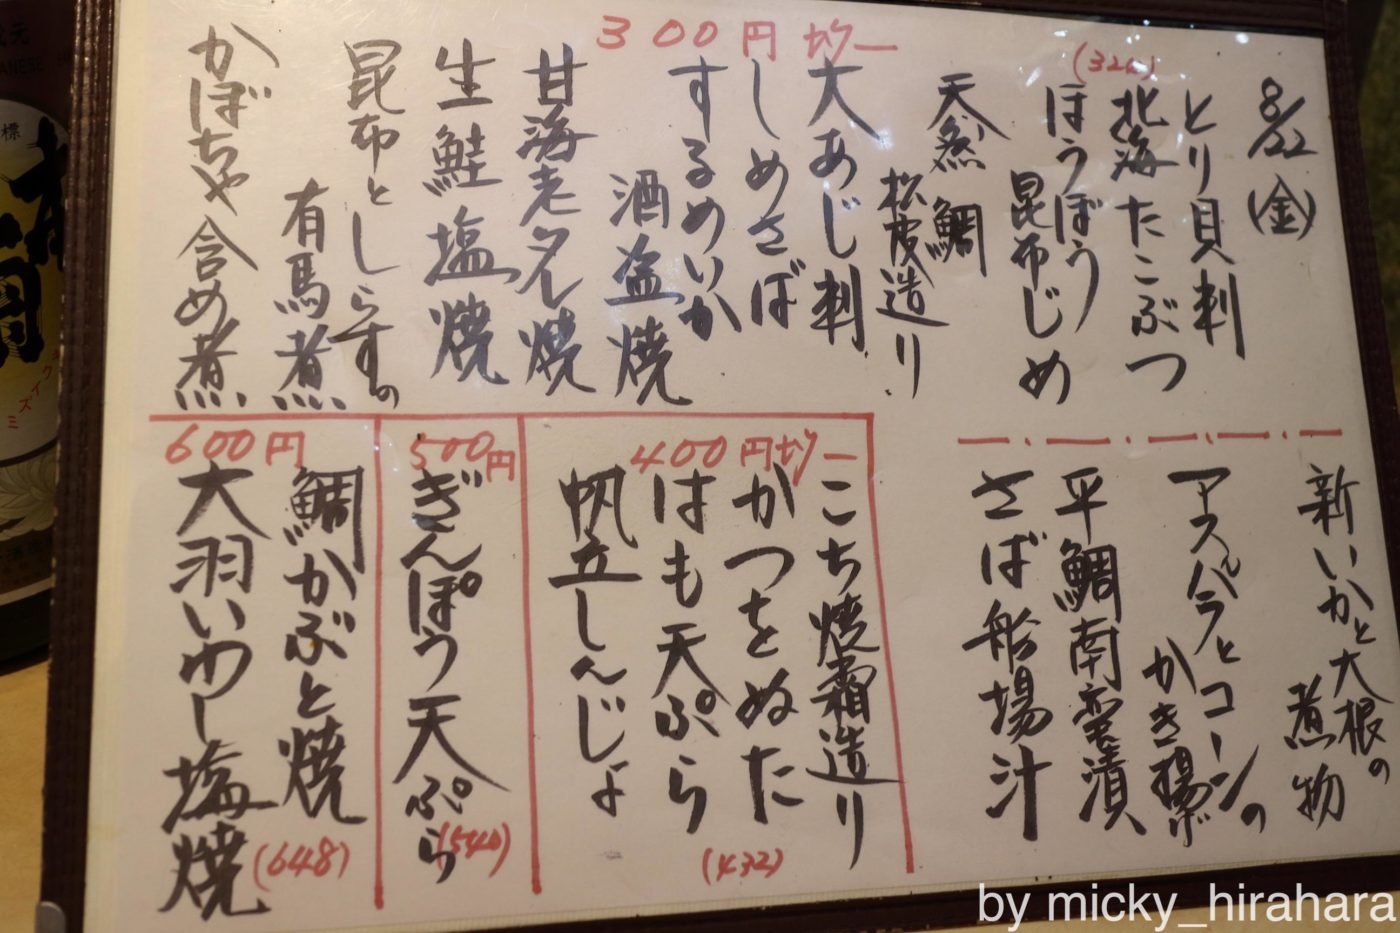 8/22
(金)
300円均一
(324)
とり貝刺
北海たこぶつ
ほうぼう
昆布じめ
天然鯛
松皮造り
大あじ刺
しめさば
するめいか
酒盗焼
甘海老タレ焼
生鮭塩焼
昆布としらすの
有馬煮
かぼちゃ含め煮
新いかと大根の
煮物
アスパラとコーンの
かき揚げ
平鯛南蛮漬
さば船場汁
400円均一
こち焼霜造り
かつをぬた
はも天ぷら
帆立しんじょ
(432)
500円
ぎんぽう天ぷら
(540)
600円
鯛かぶと焼
大羽いわし塩焼
(648)
by micky_hirahara